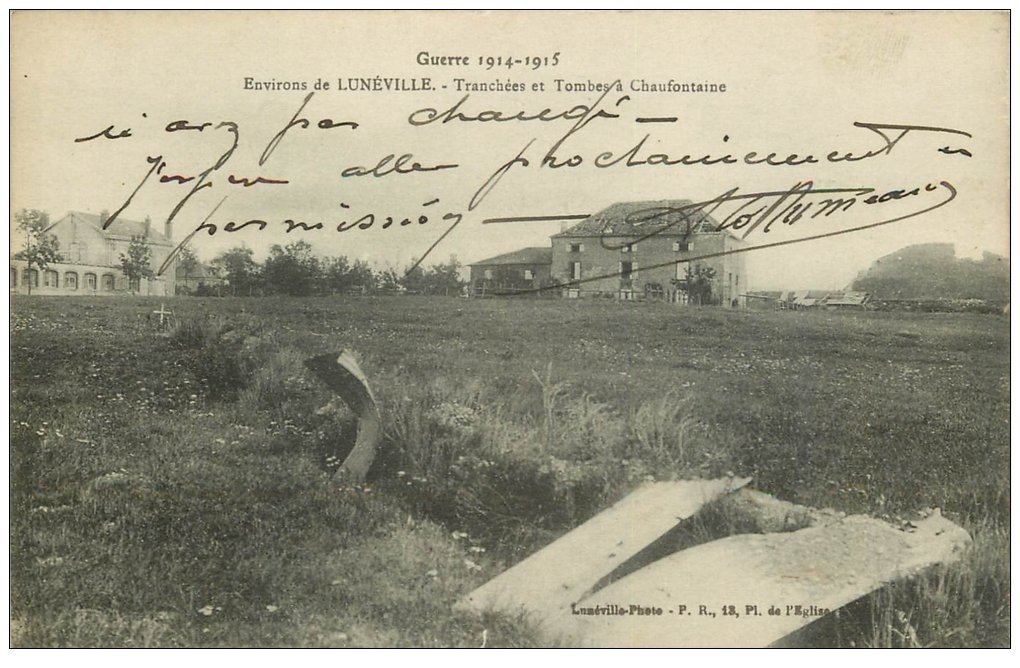 Guerre 1914-1915
Environs de LUNÉVILLE. - Tranchées et Tombes à Chaufontaine
pas changé -
aller prochainement en
permission -
Lunéville-Photo - P. R., 13, Pl. de l'Eglise